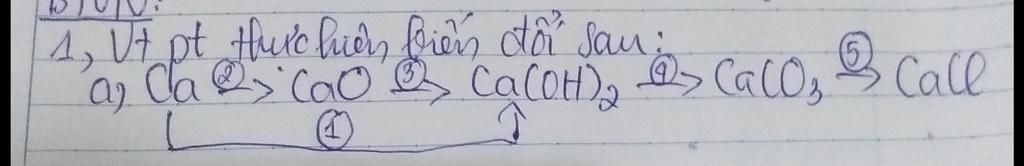 BTVN:
1, Vt pt thực hiện biến đổi sau:
a, Ca ②→ CaO ③→ Ca(OH)₂ ④→ CaCO₃ ⑤→ CaCl
①